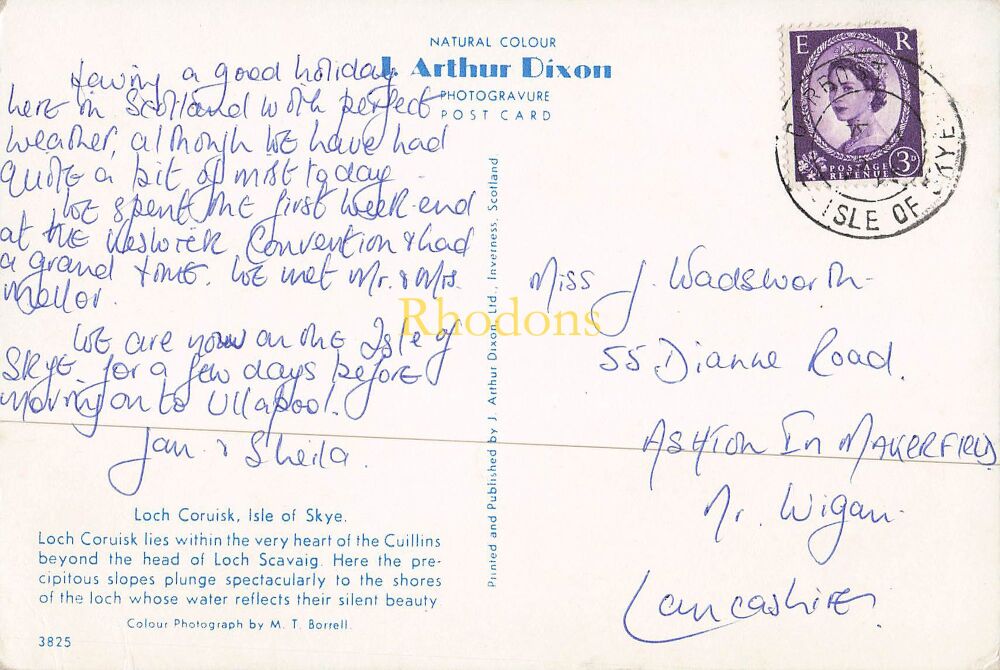 NATURAL COLOUR
J. Arthur Dixon
PHOTOGRAVURE
POST CARD
Having a good holiday
here in Scotland with perfect
weather, although we have had
quite a bit of mist today.
We spent the first week-end
at the Keswick Convention & had
a grand time. We met Mr. & Mrs.
Mellor.
We are now on the Isle of
Skye for a few days before
moving on to Ullapool.
Jan & Sheila.
Loch Coruisk, Isle of Skye.
Loch Coruisk lies within the very heart of the Cuillins
beyond the head of Loch Scavaig. Here the pre-
cipitous slopes plunge spectacularly to the shores
of the loch whose water reflects their silent beauty
Colour Photograph by M. T. Borrell.
3825
Printed and Published by J. Arthur Dixon, Ltd., Inverness, Scotland
Rhodons
E R
POSTAGE
REVENUE
3D
ISLE OF SKYE
Miss J. Wadsworth
55 Dianne Road.
ASHTON IN MAKERFIELD
Nr. Wigan.
Lancashire.